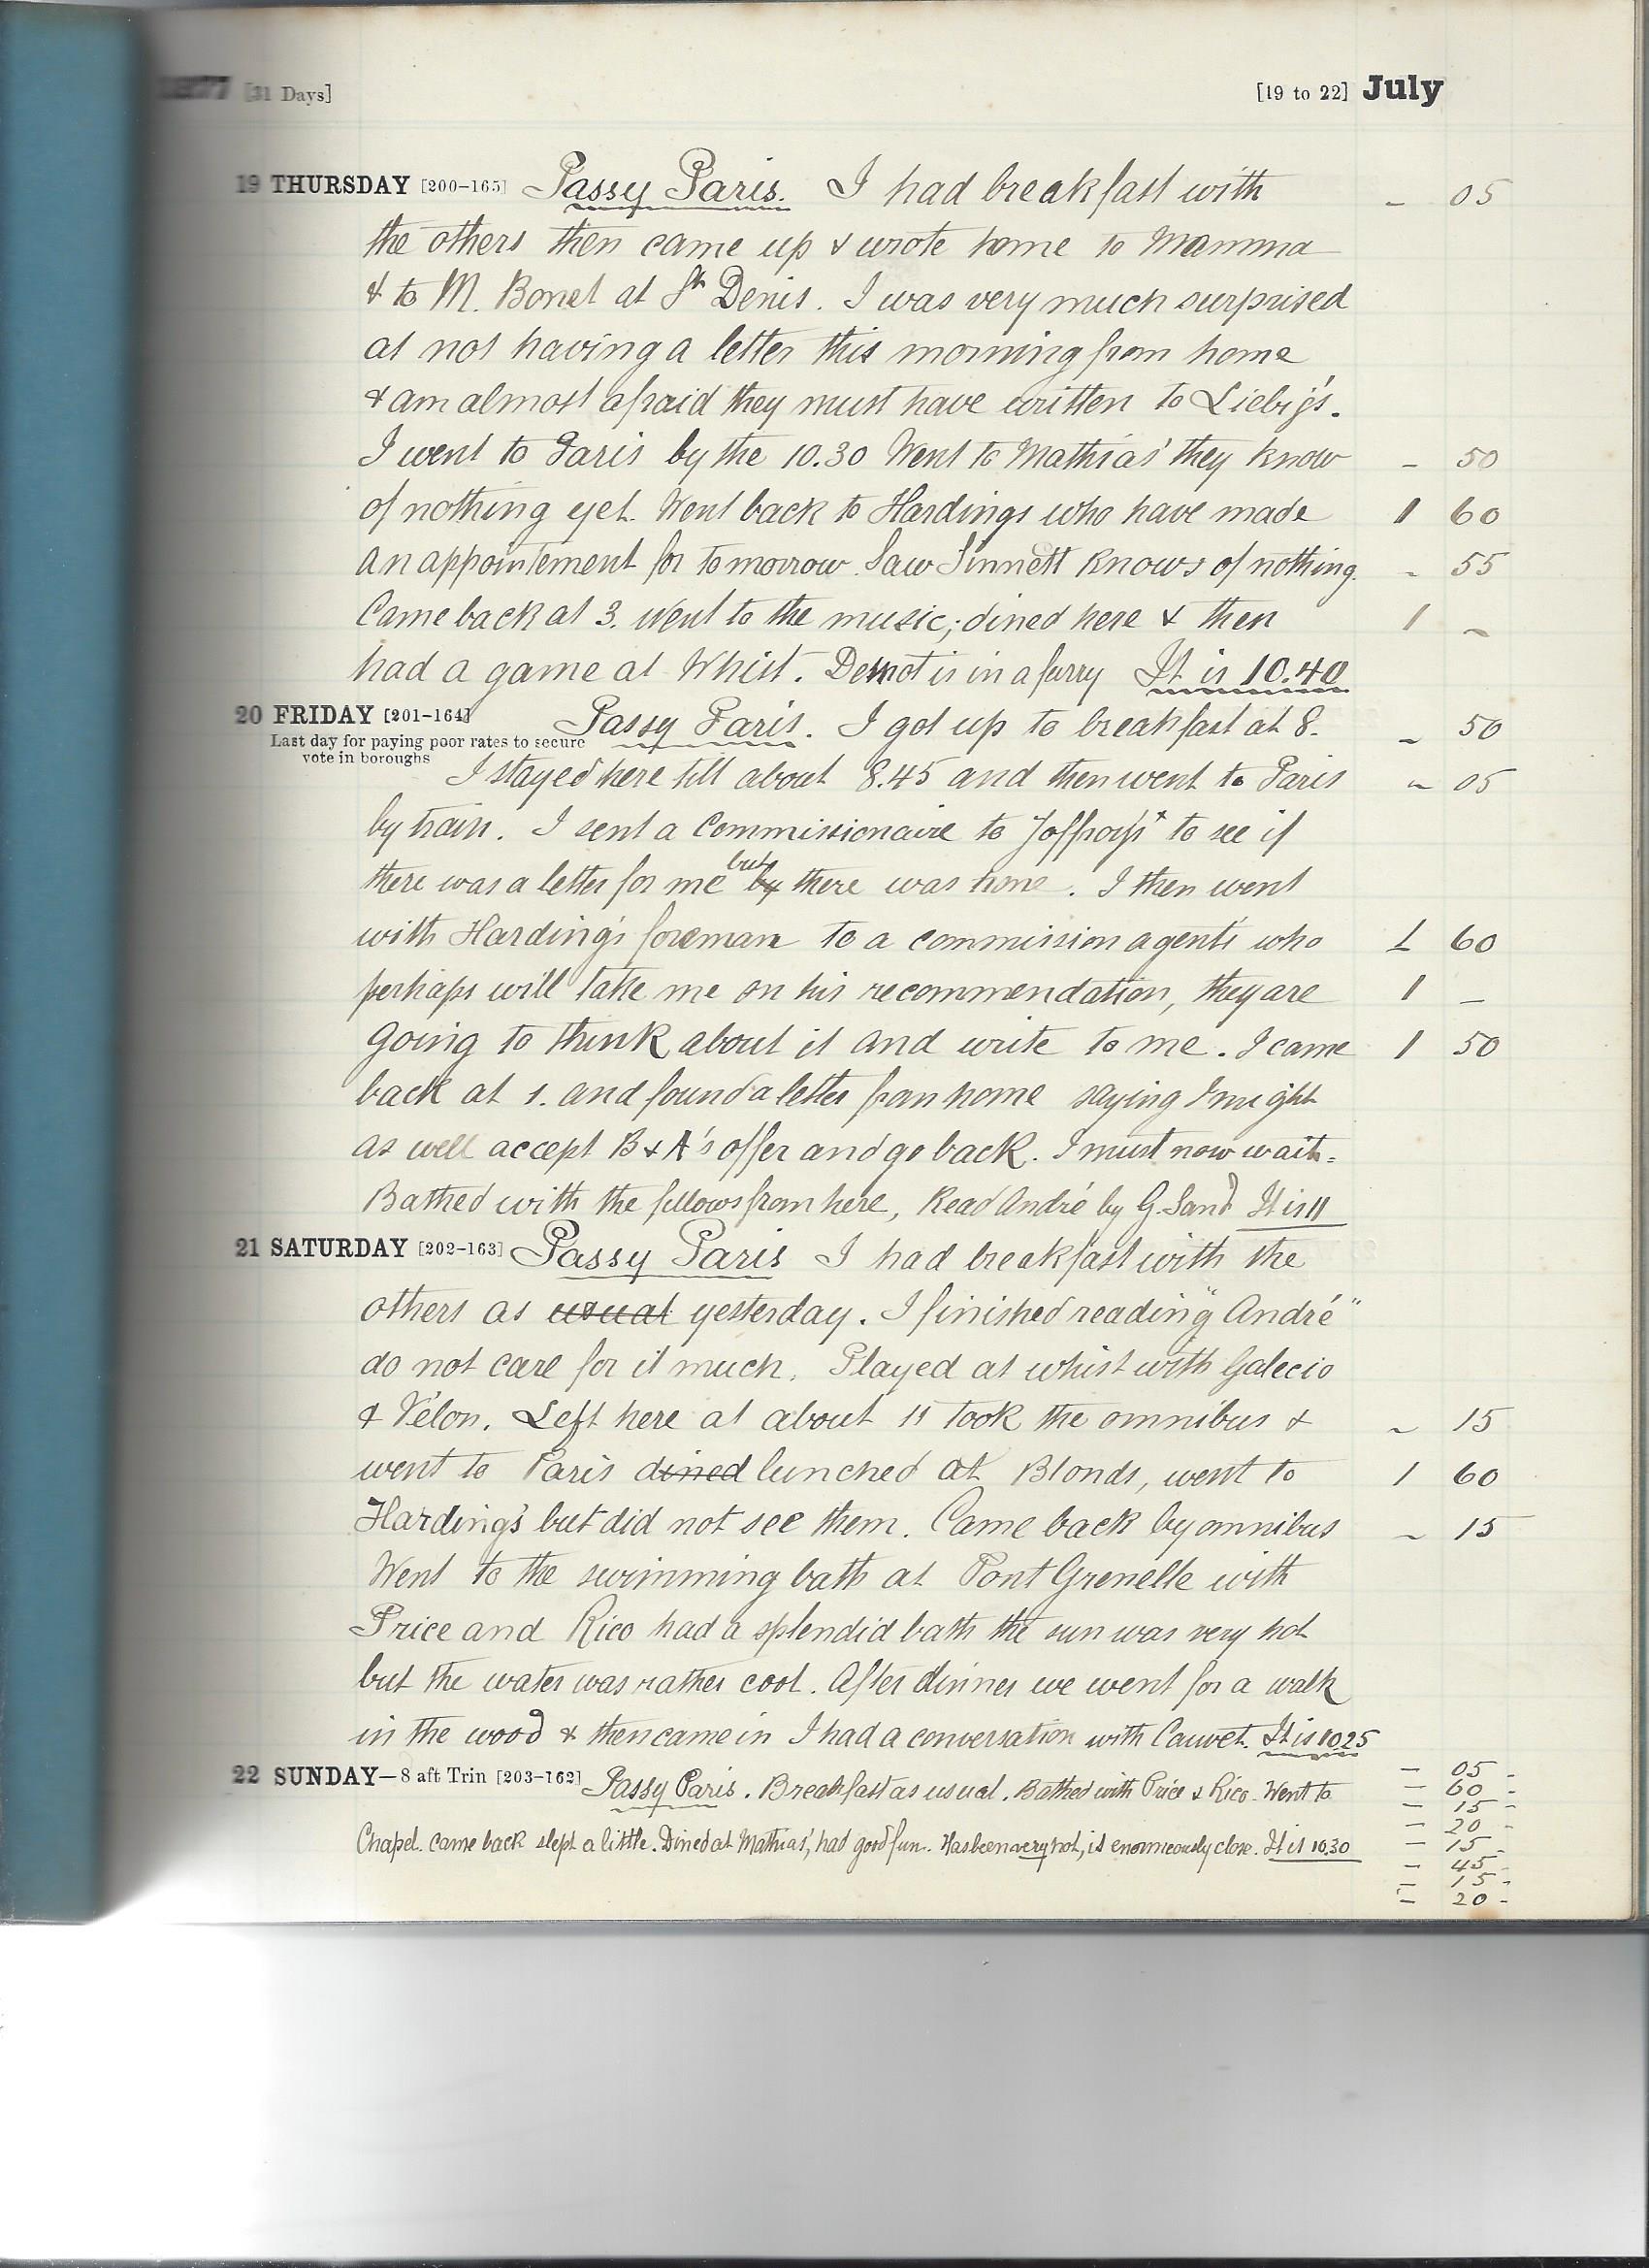 1877 [31 Days] [19 to 22] July
19 THURSDAY [200-165] Passy Paris. I had breakfast with - 05
the others then came up & wrote home to Mamma
& to M. Bonet at St Denis. I was very much surprised
at not having a letter this morning from home
& am almost afraid they must have written to Liebig's.
I went to Paris by the 10.30 Went to Mathias' they know - 50
of nothing yet. Went back to Hardings who have made 1 60
an appointement for tomorrow. Saw Sinnett knows of nothing. - 55
Came back at 3. Went to the music; dined here & then 1 -
had a game at Whist. is in a furry It is 10.40
20 FRIDAY [201-164] Passy Paris. I got up to breakfast at 8. - 50
Last day for paying poor rates to secure
vote in boroughs
I stayed here till about 8.45 and then went to Paris - 05
by train. I sent a Commissionaire to to see if
there was a letter for me but by there was none. I then went
with Harding's foreman to a commission agent's who 1 60
perhaps will take me on his recommendation, they are 1 -
going to think about it and write to me. I came 1 50
back at 1. and found a letter from home saying I might
as well accept B & A's offer and go back. I must now wait.
Bathed with the fellows from here, Read André by G. Sand It is 11
21 SATURDAY [202-163] Passy Paris I had breakfast with the
others as usual yesterday. I finished reading "André"
do not care for it much. Played at whist with Galecio
& Vélon. Left here at about 11 took the omnibus & - 15
went to Paris dined lunched at Blonds, went to 1 60
Harding's but did not see them. Came back by omnibus - 15
Went to the swimming bath at Pont Grenelle with
Price and Rico had a splendid bath the sun was very hot
but the water was rather cool. After dinner we went for a walk
in the wood & then came in I had a conversation with Cauvet. It is 10.25
22 SUNDAY—8 aft Trin [203-162] Passy Paris. Breakfast as usual. Bathed with Price & Rico. Went to
Chapel. came back slept a little. Dined at Mathias', had good fun. Has been very hot, is enormeously close. It is 10.30
- 05 -
- 60 -
- 15 -
- 20 -
- 15 -
- 45 -
- 15 -
- 20 -